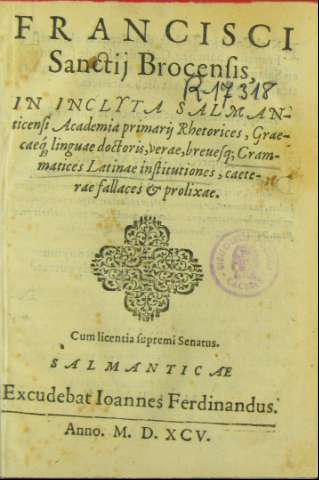 FRANCISCI
Sanctij Brocensis,
R 17318
IN INCLYTA SALMAN-
ticensi Academia primarij Rhetorices, Græ-
cæq́; linguæ doctoris, veræ, breuesq́; Gram-
matices Latinæ institutiones, cæte-
ræ fallaces & prolixæ.
Cum licentia supremi Senatus.
SALMANTICÆ
Excudebat Ioannes Ferdinandus.
Anno. M. D. XCV.